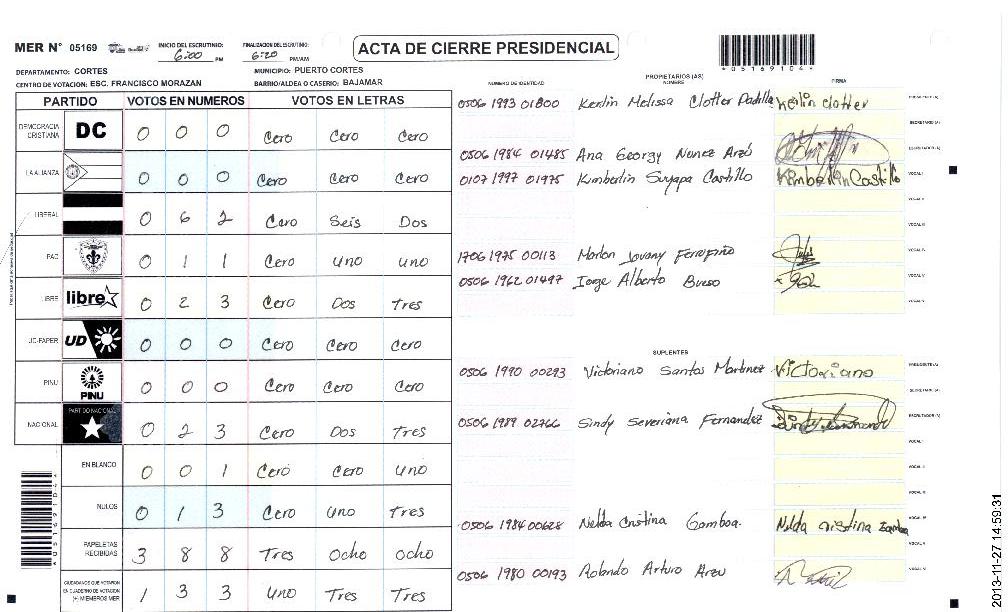 MER N° 05169
INICIO DEL ESCRUTINIO: 6:00 PM
FINALIZACION DEL ESCRUTINIO: 6:20 PM/AM
ACTA DE CIERRE PRESIDENCIAL
DEPARTAMENTO: CORTES
MUNICIPIO: PUERTO CORTES
CENTRO DE VOTACION: ESC. FRANCISCO MORAZAN
BARRIO/ALDEA O CASERIO: BAJAMAR
PARTIDO VOTOS EN NUMEROS VOTOS EN LETRAS
DEMOCRACIA CRISTIANA DC 0 0 0 Cero Cero Cero
LA ALIANZA 0 0 0 Cero Cero Cero
LIBERAL 0 6 2 Cero Seis Dos
PAC 0 1 1 Cero uno uno
LIBRE libre 0 2 3 Cero Dos Tres
UD-FAPER UD 0 0 0 Cero Cero Cero
PINU PINU 0 0 0 Cero Cero Cero
NACIONAL PARTIDO NACIONAL 0 2 3 Cero Dos Tres
EN BLANCO 0 0 1 Cero Cero Uno
NULOS 0 1 3 Cero Uno Tres
PAPELETAS RECIBIDAS 3 8 8 Tres Ocho ocho
CIUDADANOS QUE VOTARON EN CUADERNO DE VOTACION (+) MIEMBROS MER 1 3 3 Uno Tres Tres
*05169104*
NUMERO DE IDENTIDAD
PROPIETARIOS (AS)
NOMBRE
FIRMA
0506 1993 01800 Kenlin Melissa Clotter Padilla Keilin clotter
0506 1984 01485 Ana Georgy Nunez Arzú
0107 1997 01975 Kimberlin Suyapa Castillo Kimberlin Castillo
1706 1975 00113 Marlon Jovany
0506 1962 01497 Jorge Alberto Bueso
SUPLENTES
0506 1990 00293 Victoriano Santos Martinez Victoriano
0506 1989 02766 Sindy Severiana Fernandez
0506 1984 00628 Nelda Cristina Gamboa. Nelda cristina Gamboa
0506 1980 00193 Rolando Arturo Arzu
2013-11-27 14:59:31